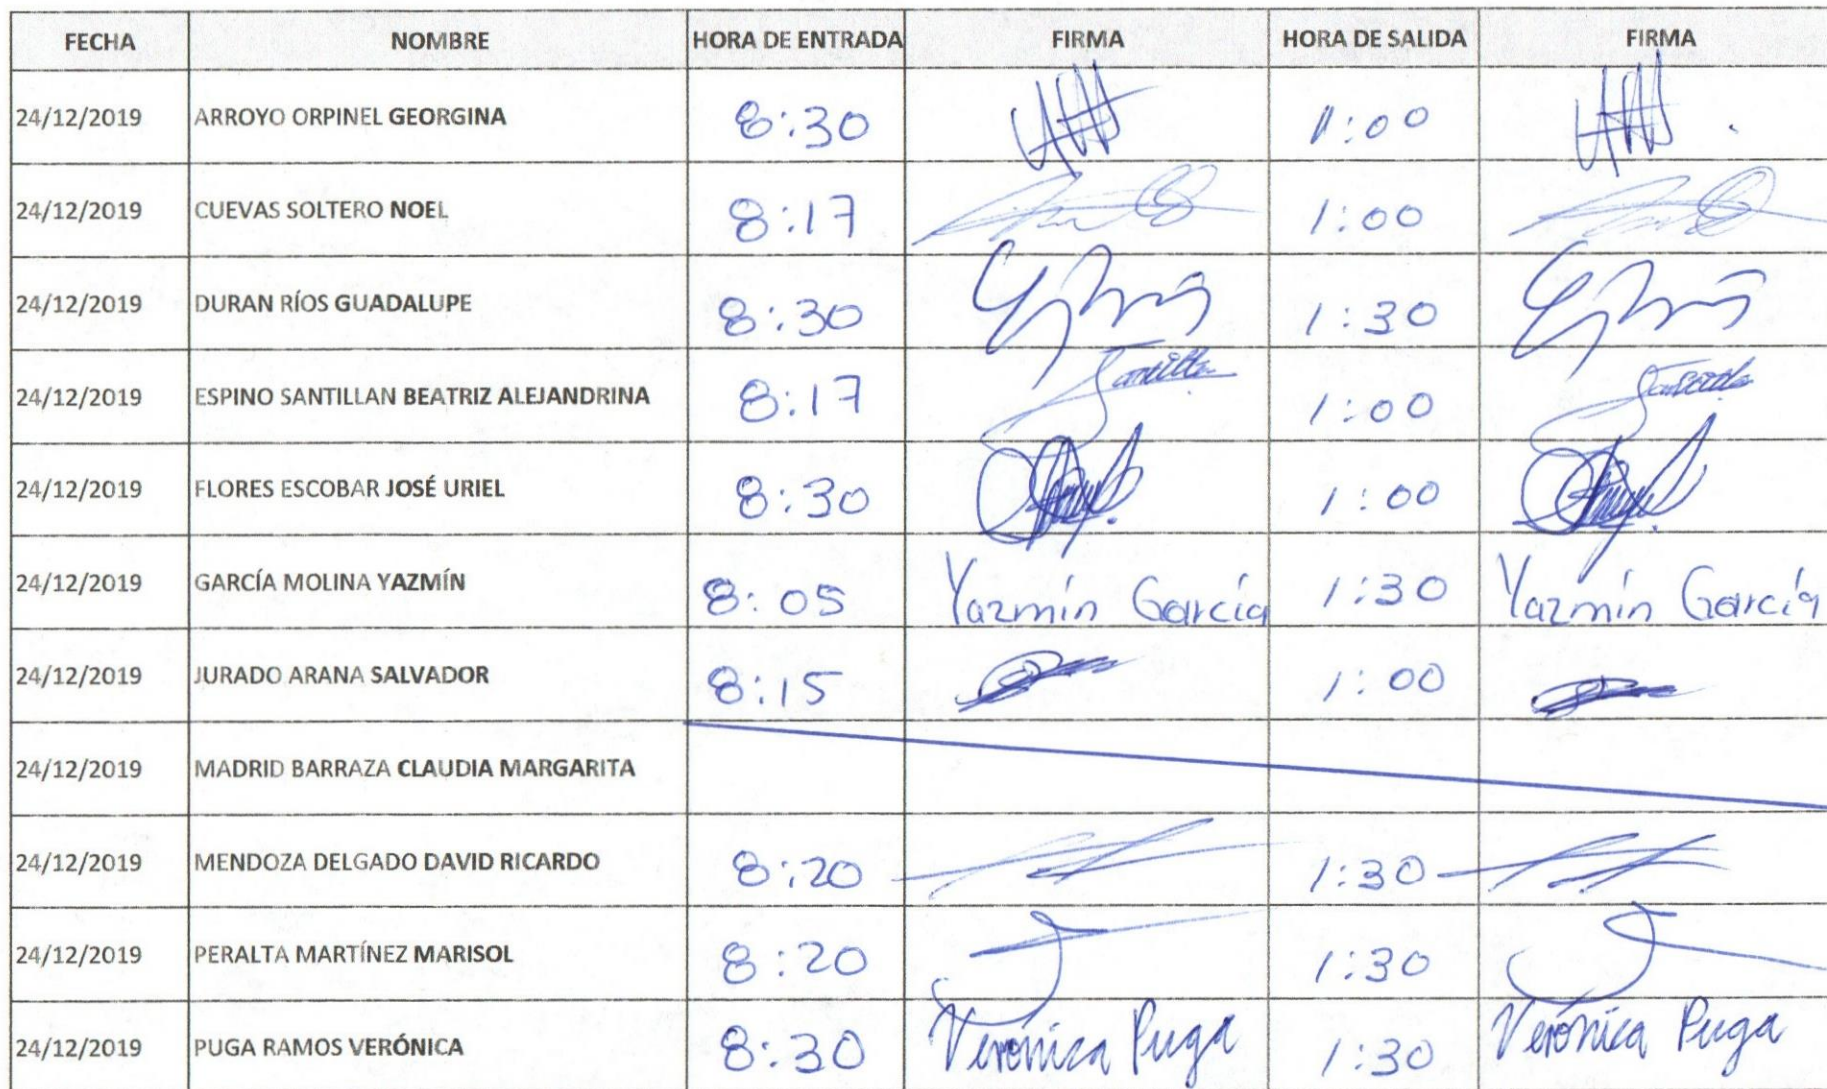 FECHA NOMBRE HORA DE ENTRADA FIRMA HORA DE SALIDA FIRMA
24/12/2019 ARROYO ORPINEL GEORGINA 8:30 1:00
24/12/2019 CUEVAS SOLTERO NOEL 8:17 1:00
24/12/2019 DURAN RÍOS GUADALUPE 8:30 1:30
24/12/2019 ESPINO SANTILLAN BEATRIZ ALEJANDRINA 8:17 1:00
24/12/2019 FLORES ESCOBAR JOSÉ URIEL 8:30 1:00
24/12/2019 GARCÍA MOLINA YAZMÍN 8:05 Yazmín García 1:30 Yazmín García
24/12/2019 JURADO ARANA SALVADOR 8:15 1:00
24/12/2019 MADRID BARRAZA CLAUDIA MARGARITA
24/12/2019 MENDOZA DELGADO DAVID RICARDO 8:20 1:30
24/12/2019 PERALTA MARTÍNEZ MARISOL 8:20 1:30
24/12/2019 PUGA RAMOS VERÓNICA 8:30 Verónica Puga 1:30 Verónica Puga